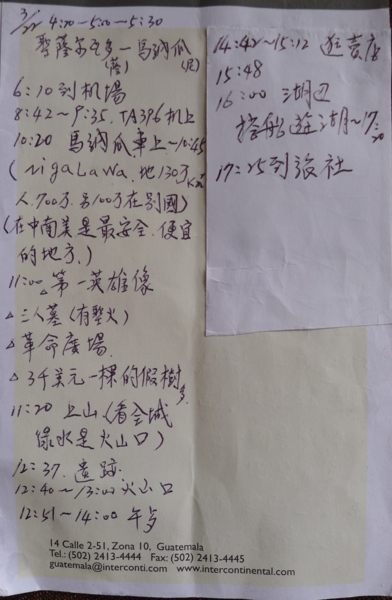 3/22 4:20~5:20~5:30
聖薩尔瓦多一馬納瓜
(薩) (尼)
6:10到机場
8:42~9:35.TA396机上
10:20 馬納瓜車上~10:45
(NigaLawa.地130万
人.700万.另100万在别國)
(在中南美是最安全.便宜
的地方.)
11:00△第一英雄像
△三人墓(有聖火)
△革命廣場.
△3千美元一棵的假樹多
11:20 上山(看全城
綠水是火山口)
12:37.遺跡.
12:40~13:00火山口
12:51~14:00 午歺
14 Calle 2-51, Zona 10, Guatemala
Tel.: (502) 2413-4444 Fax: (502) 2413-4445
guatemala@interconti.com www.intercontinental.com
14:42~15:12 逛賣店
15:48
16:00 湖边
搭船遊湖~17:20
17:25到旅社